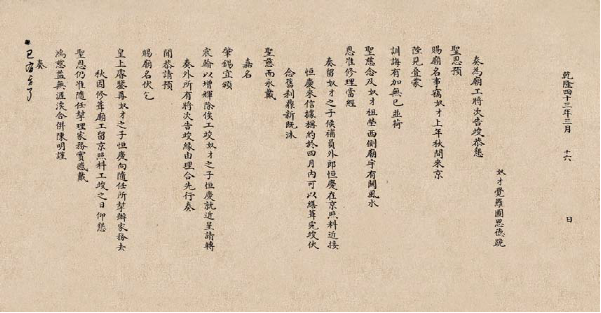 乾隆四十三年三月 十六 日
奴才覺羅圖思德跪
奏為廟工將次告竣恭懇
聖恩預
賜廟名事竊奴才上年秋間來京
陛見疊蒙
訓誨有加無已並荷
聖慈念及奴才祖塋西側廟宇有關風水
恩准修理當經
奏留奴才之子候補員外郎恒慶在京照料近接
恒慶來信據稱約於四月內可以繕葺完竣伏
念舊剎雖新既沐
聖慈而永戴
嘉名
肇錫宜頒
宸翰以增輝除俟工竣奴才之子恒慶就近呈請轉
奏外所有將次告竣緣由理合先行奏
聞恭請預
賜廟名伏乞
皇上睿鑒再奴才之子恒慶向隨任所幫辦家務去
秋因修葺廟工留京照料工竣之日仰懇
聖恩仍准隨任幫理家務實感戴
鴻慈益無涯涘合併陳明謹
奏
已有旨了